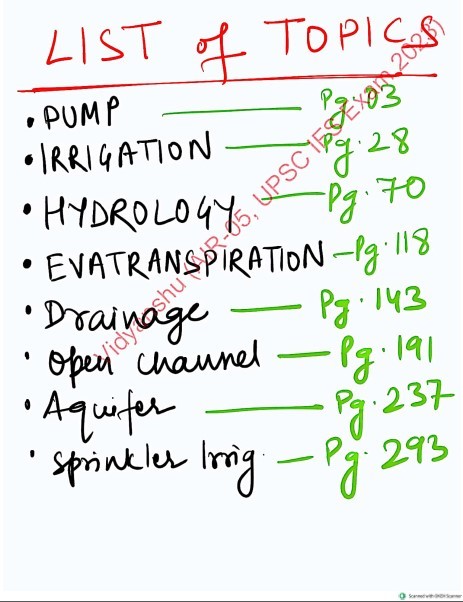 LIST of TOPICS
• PUMP — Pg. 03
• IRRIGATION — Pg. 28
• HYDROLOGY — Pg. 70
• EVATRANSPIRATION — Pg. 118
• Drainage — Pg. 143
• Open channel — Pg. 191
• Aquifer — Pg. 237
• Sprinkler Irrig. — Pg. 293
Vidyanshu (AIR-05, UPSC IFS Exam 2023)
Scanned with OKEN Scanner